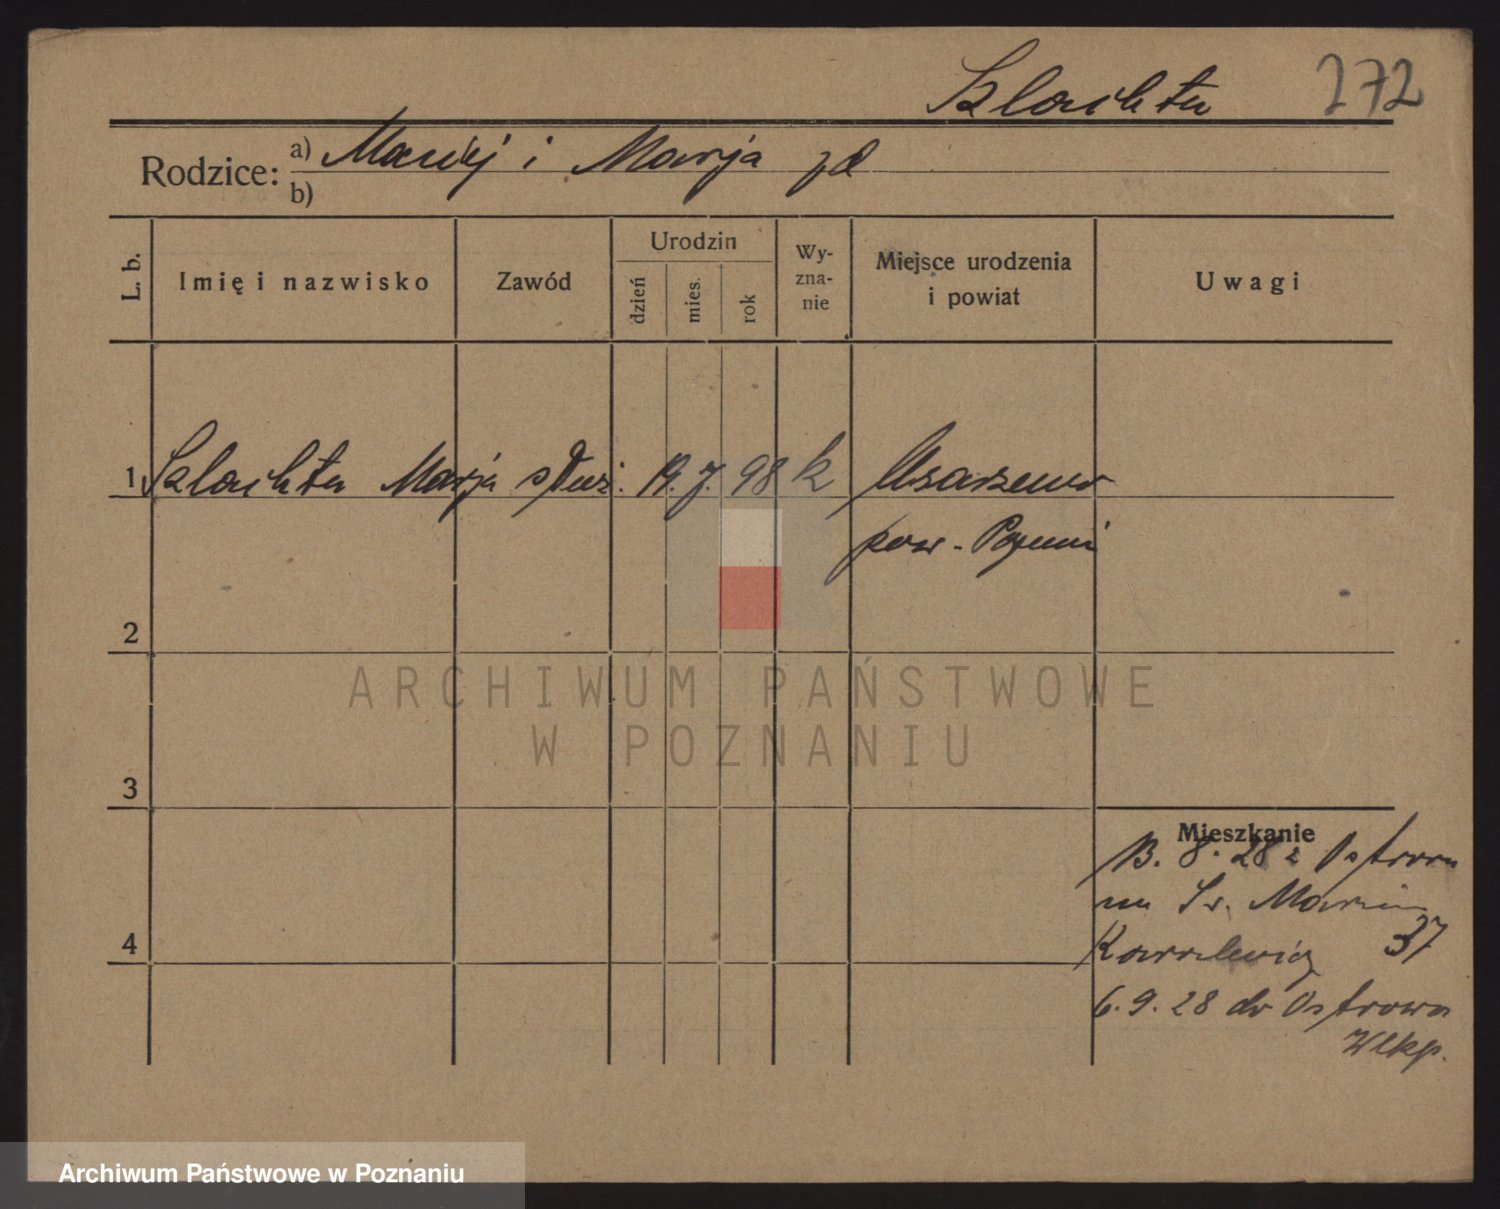 Szlachta 272
Rodzice: a) Maciej i Marja zd
b)
L. b. Imię i nazwisko Zawód Urodzin dzień mies. rok Wy-zna-nie Miejsce urodzenia i powiat Uwagi
1 Szlachta Marja służ. 19. 7. 98 k
pow. Poznań
2
ARCHIWUM PAŃSTWOWE
W POZNANIU
3
Mieszkanie
8. 28 z Ostrowa
na Św. Marcin
37
4
6. 9. 28 do Ostrowa
Wlkp.
Archiwum Państwowe w Poznaniu